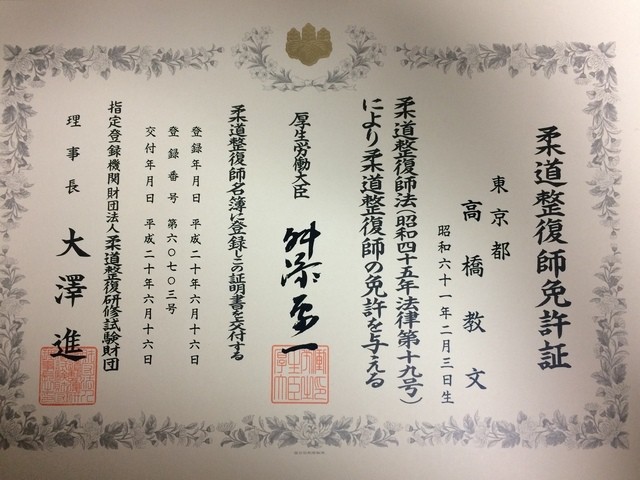 柔道整復師免許証
東京都
高橋教文
昭和六十一年二月三日生
柔道整復師法(昭和四十五年法律第十九号)
により柔道整復師の免許を与える
厚生労働大臣
舛添要一
柔道整復師名簿に登録しこの証明書を交付する
登録年月日 平成二十年六月十六日
登録番号 第六〇七〇三号
交付年月日 平成二十年六月十六日
指定登録機関財団法人柔道整復研修試験財団
理事長 大澤進